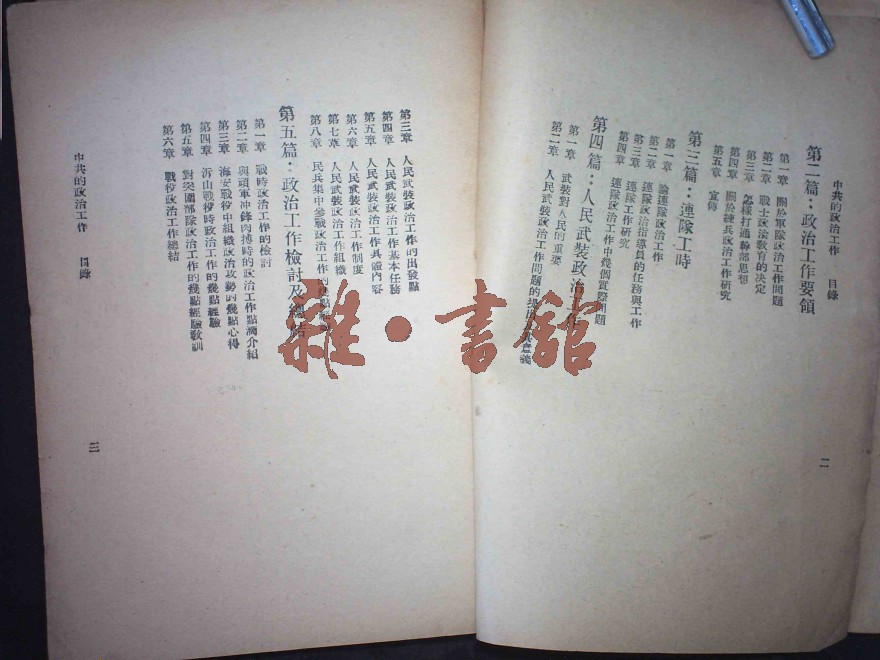 中共的政治工作　目錄
第二篇：政治工作要領
第一章　關於軍隊政治工作問題
第二章　戰士政治教育的決定
第三章　怎樣打通幹部思想
第四章　關於練兵政治工作研究
第五章　宣傳
第三篇：連隊工時
第一章　論連隊政治工作
第二章　連隊政治指導員的任務與工作
第三章　連隊工作研究
第四章　連隊政治工作中幾個實際問題
第四篇：人民武裝政治
第一章　武裝對人民的重要
第二章　人民武裝政治工作問題的提出及其意義
二
第三章　人民武裝政治工作的出發點
第四章　人民武裝政治工作基本任務
第五章　人民武裝政治工作具體內容
第六章　人民武裝政治工作制度
第七章　人民武裝政治工作組織
第八章　民兵集中參戰政治工作的幾點
第五篇：政治工作檢討及總結
第一章　戰時政治工作的檢討
第二章　與頑軍冲鋒肉搏時的政治工作點滴介紹
第三章　海安戰役中組織政治攻勢的幾點心得
第四章　沂山戰役時政治工作的幾點經驗
第五章　對突圍部隊政治工作的幾點經驗教訓
第六章　戰役政治工作總結
中共的政治工作　目錄
三
雜·書館